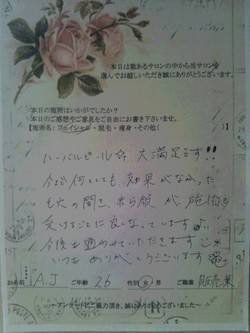 本日は数あるサロンの中から当サロンを
選んでお越しいただき誠にありがとうございます。
本日の施術はいかがでしたか？
本日のご感想やご意見をご自由にお書き下さいませ。
【施術名：フェイシャル・脱毛・痩身・その他（　　）】
ハーバルピール☆☆ 大満足です!!
今まで何をしても効果がなかった
毛穴の開き、赤ら顔が施術を
受けるごとに良くなっています♪
今後も通わせていただきます
いつもありがとうございます
お名前 A.J ご年齢 26 性別 女・男 ご職業 販売業
〜アンケートにご協力頂き、誠にありがとうございました〜